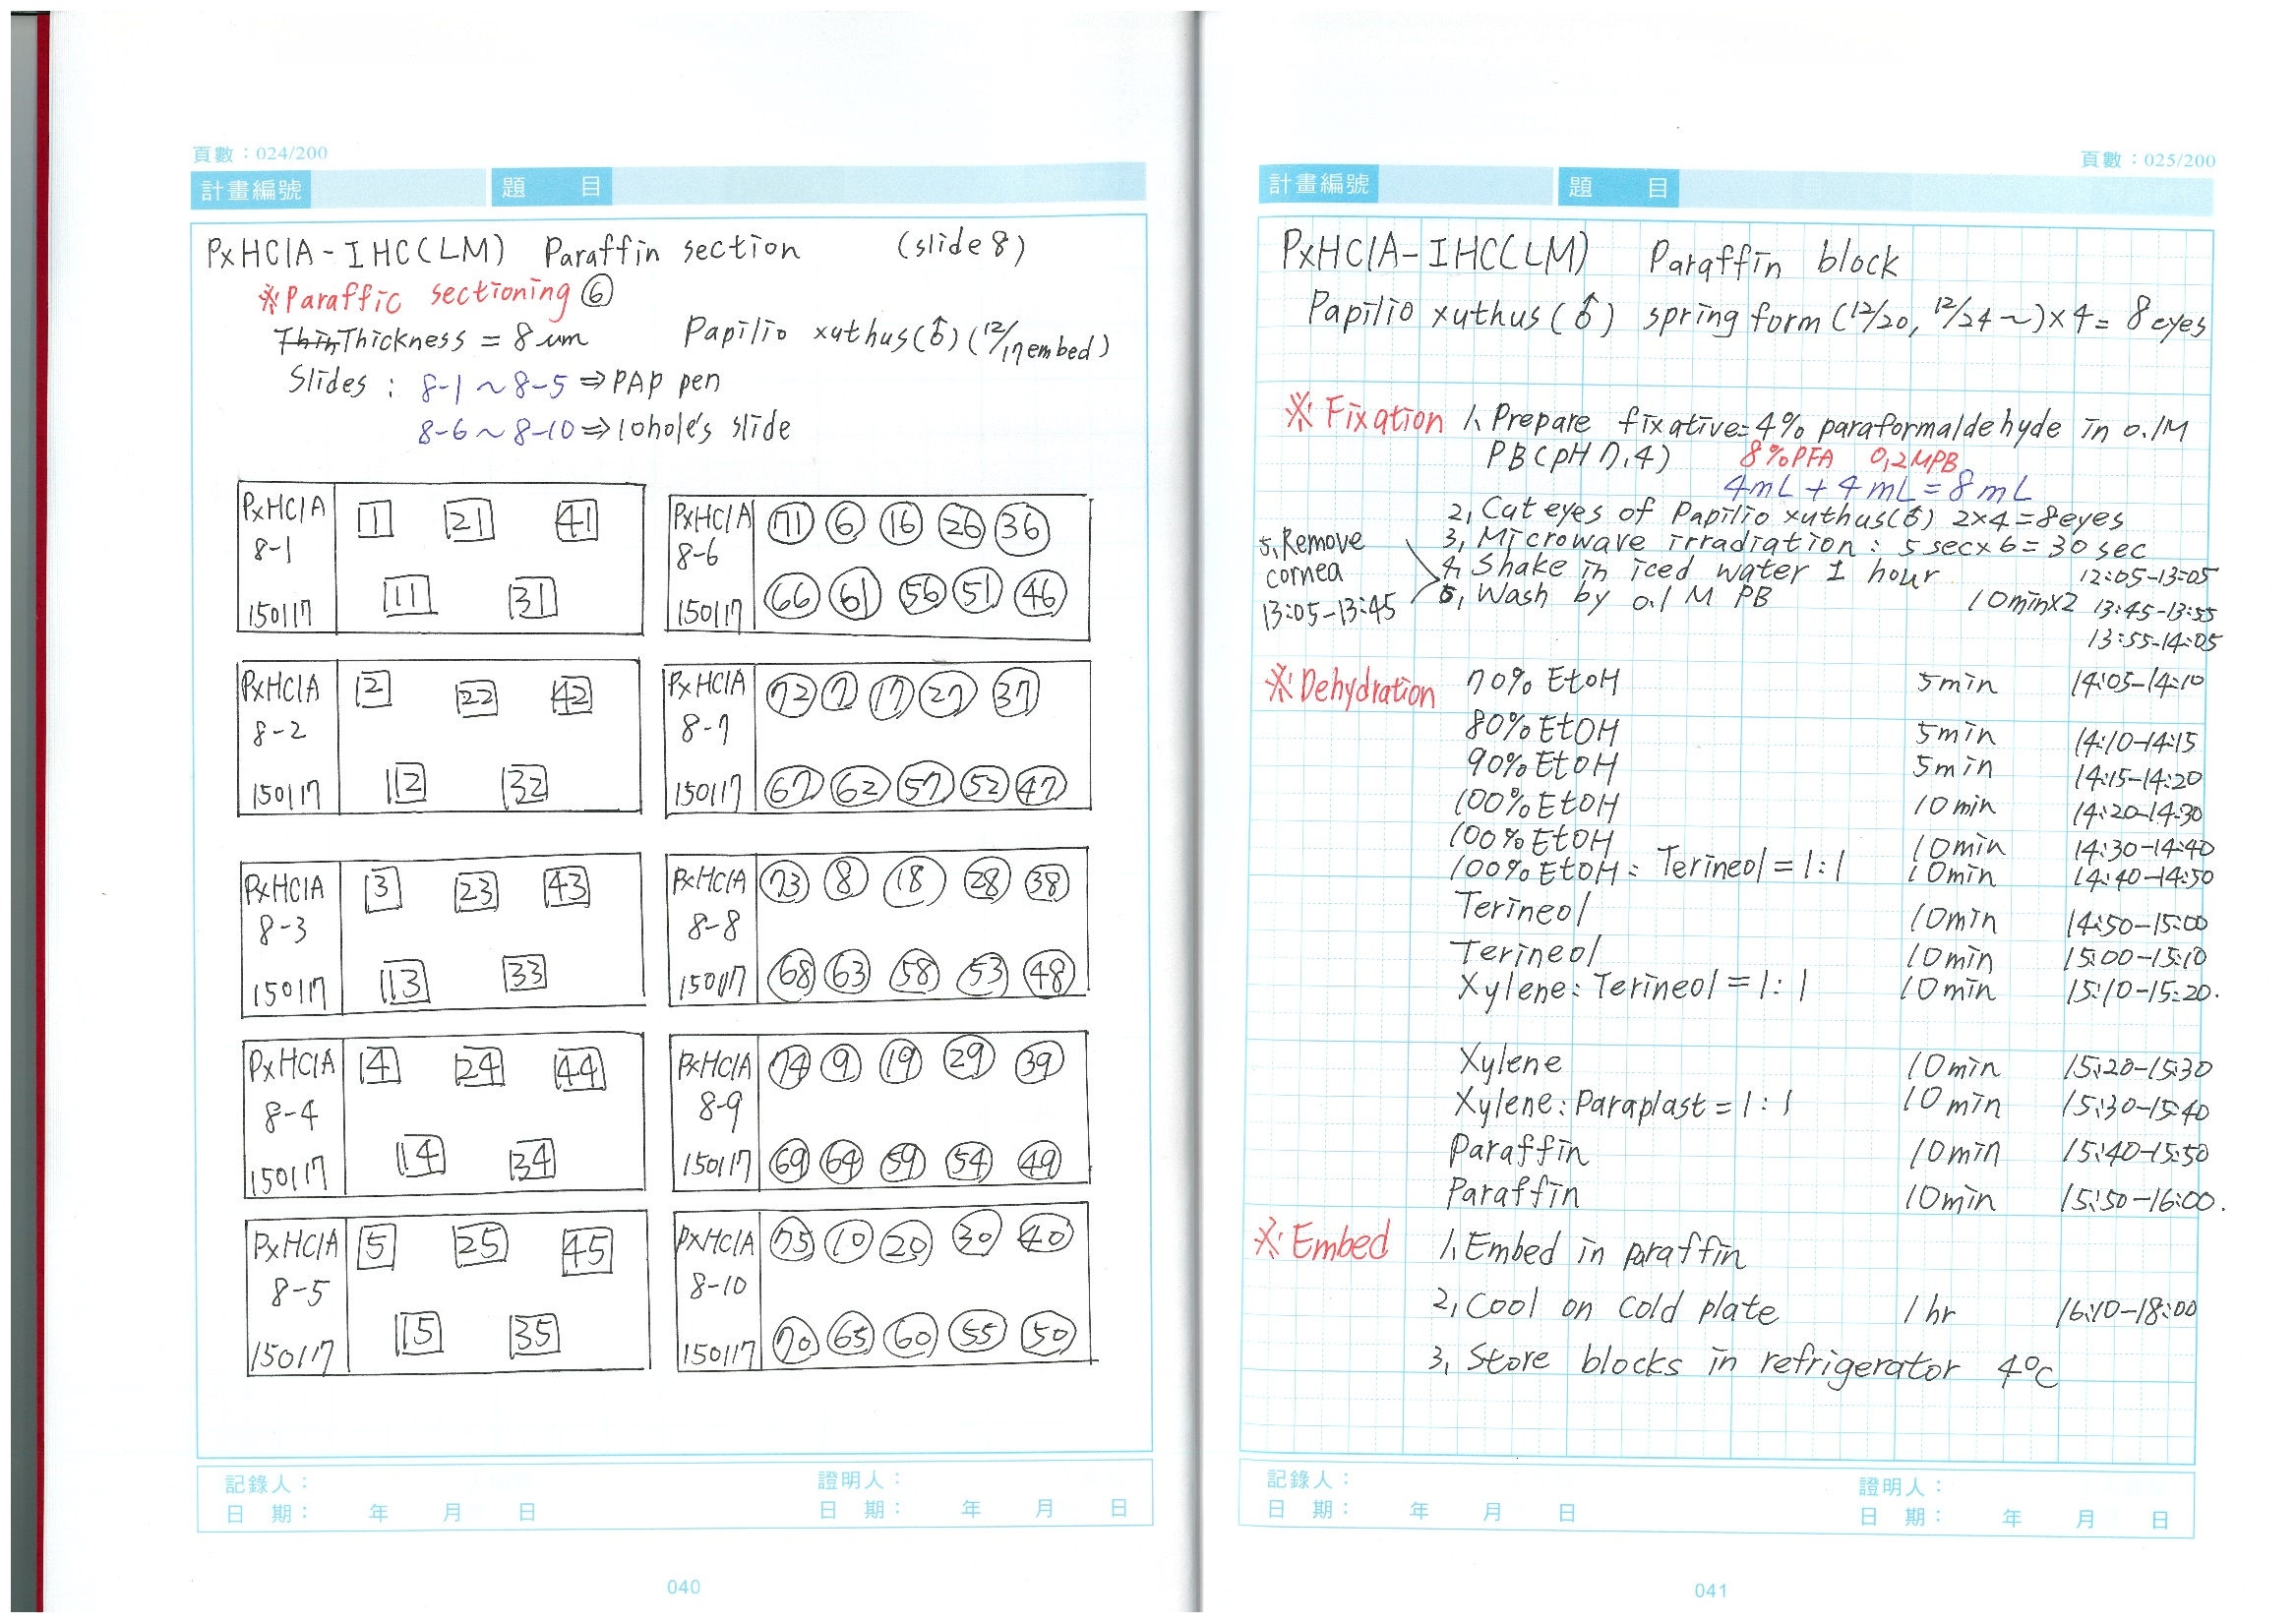 頁數：024/200
計畫編號 題目
PxHClA-IHC(LM) Paraffin section (slide 8)
※Paraffic sectioning ⑥
Thin Thickness = 8 um Papilio xuthus(♂)(12/17 embed)
Slides : 8-1 ~ 8-5 ⇒ PAP pen
8-6 ~ 8-10 ⇒ 10hole's slide
PxHClA 1 21 41
8-1
150117 11 31
PxHClA 71 6 16 26 36
8-6
150117 66 61 56 51 46
PxHClA 2 22 42
8-2
150117 12 32
PxHClA 72 7 17 27 37
8-7
150117 67 62 57 52 47
PxHClA 3 23 43
8-3
150117 13 33
PxHClA 73 8 18 28 38
8-8
150117 68 63 58 53 48
PxHClA 4 24 44
8-4
150117 14 34
PxHClA 74 9 19 29 39
8-9
150117 69 64 59 54 49
PxHClA 5 25 45
8-5
150117 15 35
PxHClA 75 10 20 30 40
8-10
150117 70 65 60 55 50
記錄人： 證明人：
日期： 年 月 日 日期： 年 月 日
040
頁數：025/200
計畫編號 題目
PxHClA-IHC(LM) Paraffin block
Papilio xuthus(♂) spring form (12/20, 12/24 ~)×4 = 8 eyes
※Fixation 1, Prepare fixative=4% paraformaldehyde in 0.1M
PB(pH 7.4) 8%PFA 0.2MPB
4mL + 4mL = 8mL
2, Cut eyes of Papilio xuthus(♂) 2×4=8eyes
3, Microwave irradiation : 5 sec×6=30 sec
4, Shake in iced water 1 hour 12:05-13:05
5, Remove cornea 13:05-13:45
6, Wash by 0.1 M PB 10min×2 13:45-13:55
13:55-14:05
※Dehydration 70% EtOH 5min 14:05-14:10
80% EtOH 5min 14:10-14:15
90% EtOH 5min 14:15-14:20
100% EtOH 10min 14:20-14:30
100% EtOH 10min 14:30-14:40
100% EtOH : Terineol = 1:1 10min 14:40-14:50
Terineol 10min 14:50-15:00
Terineol 10min 15:00-15:10
Xylene : Terineol = 1:1 10min 15:10-15:20.
Xylene 10min 15:20-15:30
Xylene : Paraplast = 1:1 10min 15:30-15:40
Paraffin 10min 15:40-15:50
Paraffin 10min 15:50-16:00.
※Embed 1, Embed in paraffin
2, Cool on cold plate 1hr 16:10-18:00
3, Store blocks in refrigerator 4°C
記錄人： 證明人：
日期： 年 月 日 日期： 年 月 日
041